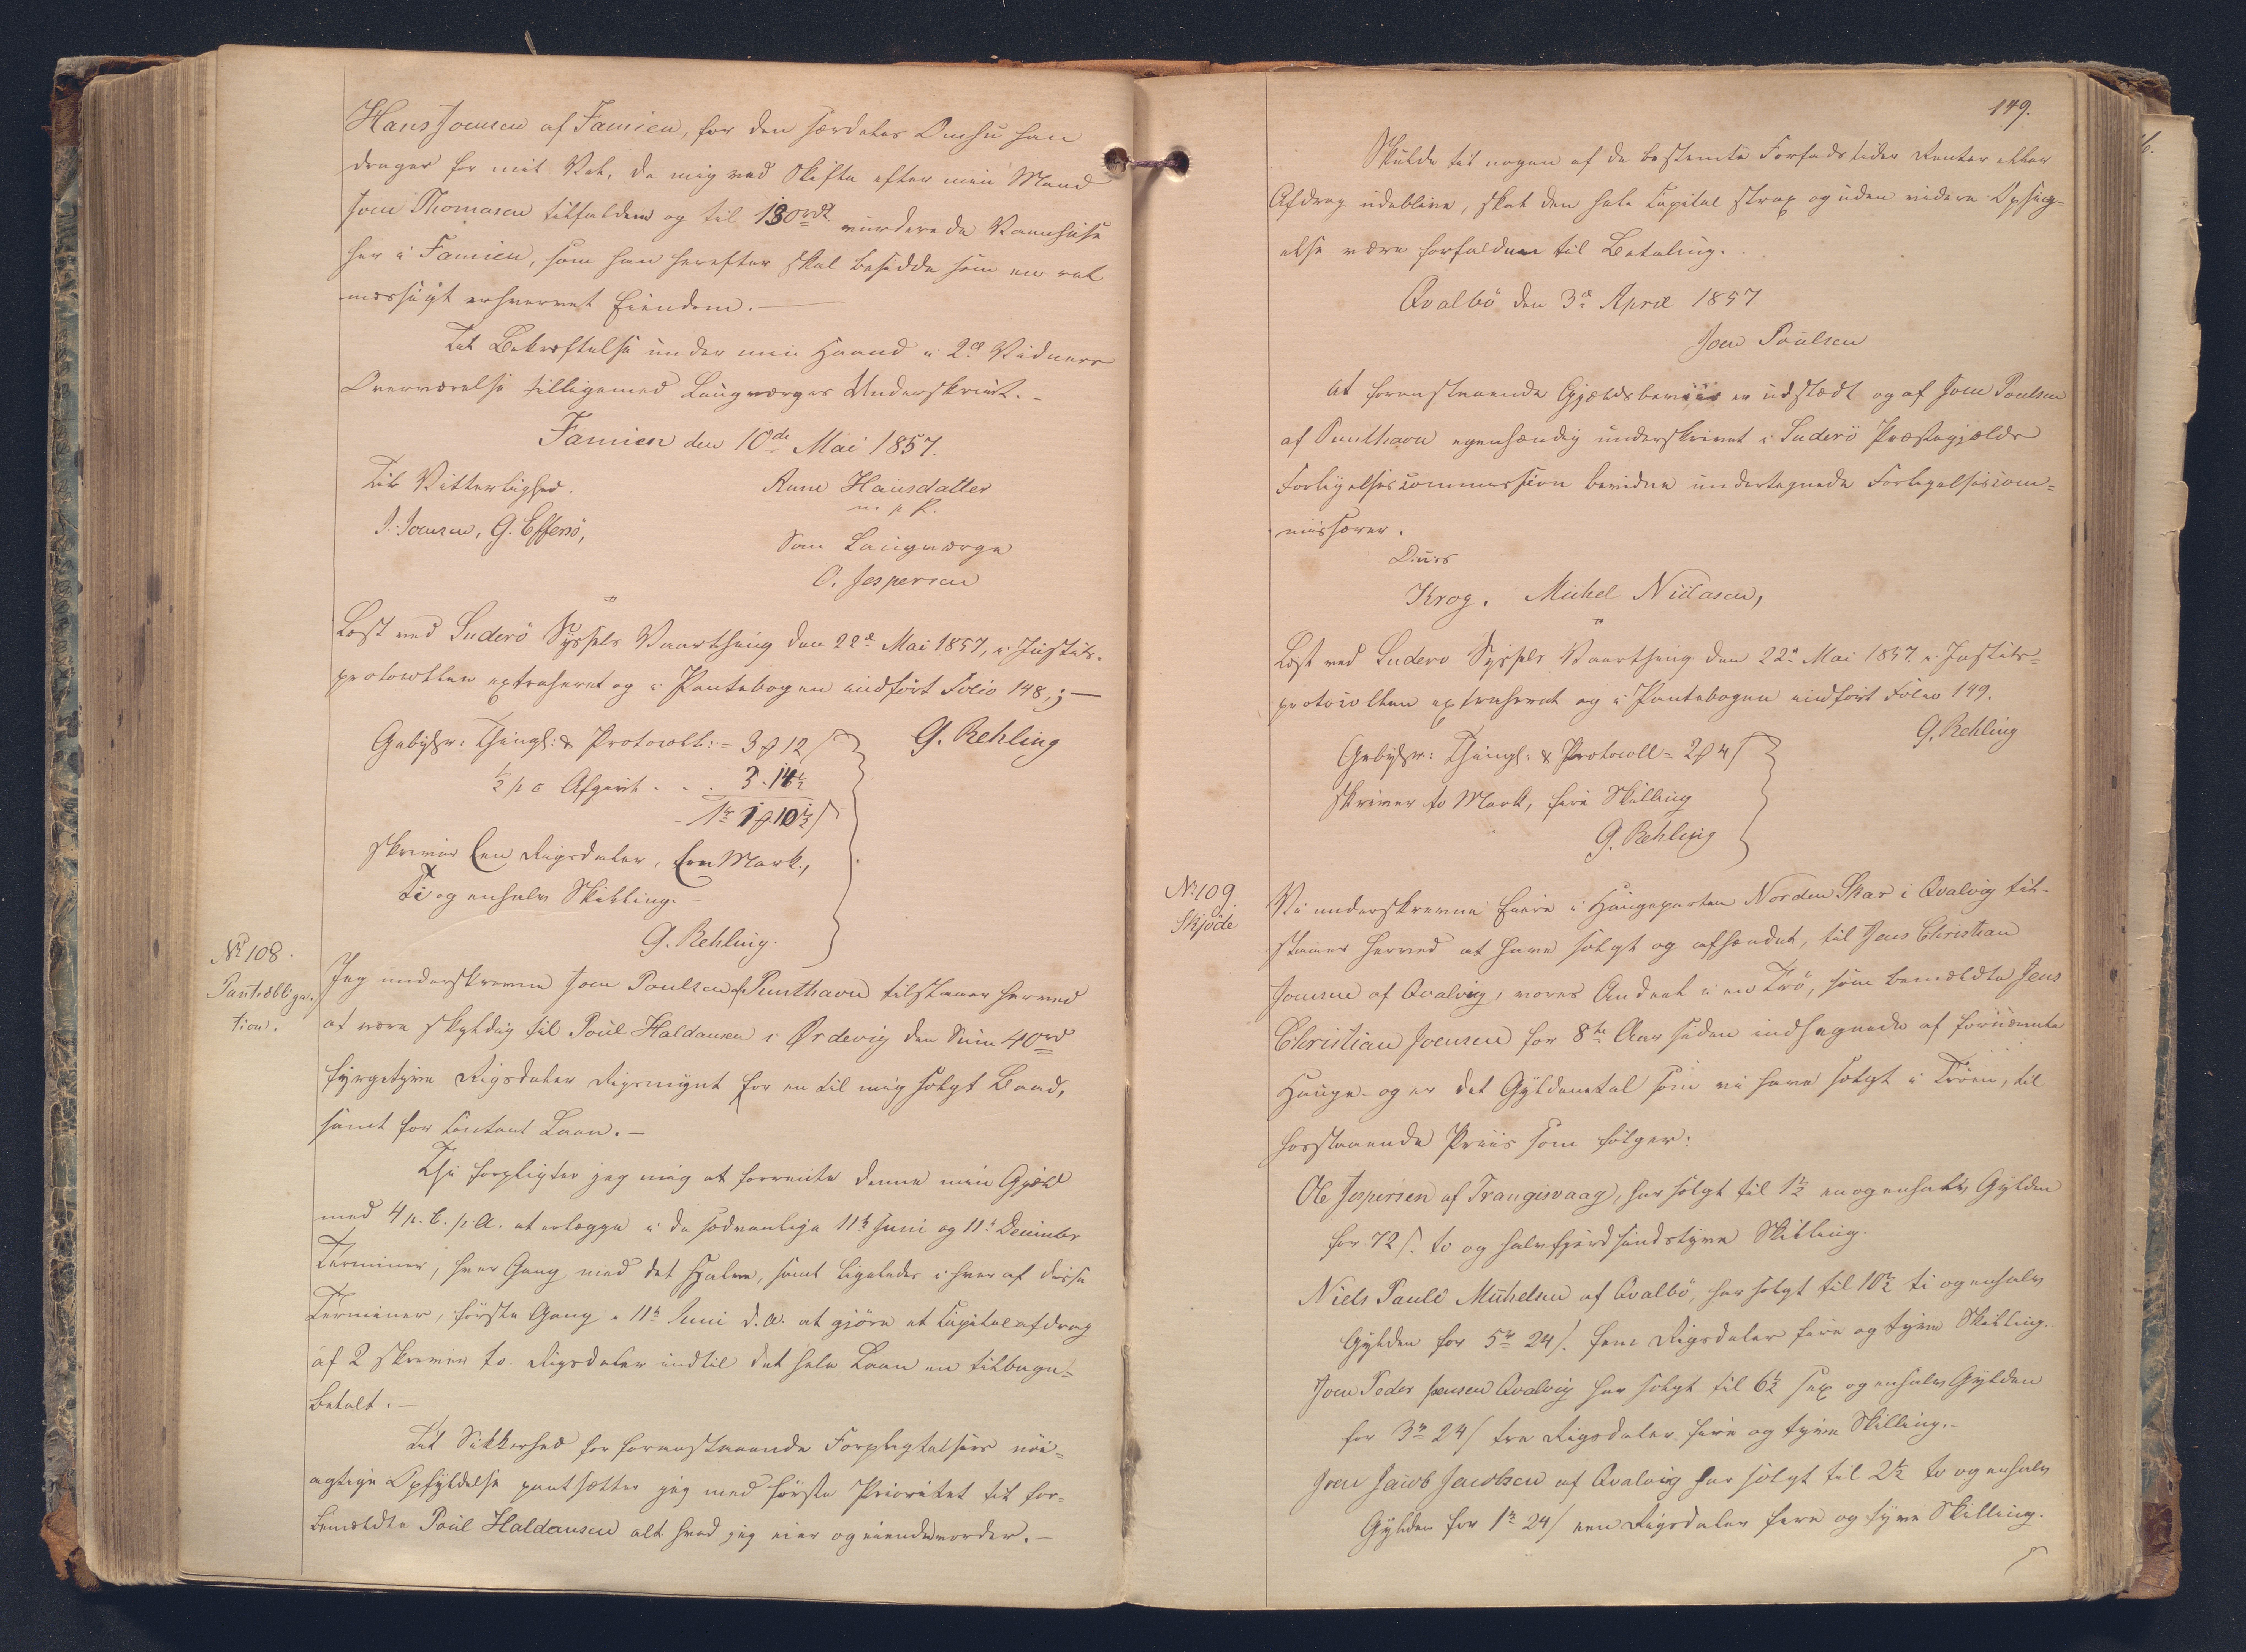 Hans Joensen af Famien, for den særdeles Omhu han
drager for mit Vel, de mig ved Skifte efter min Mand
Joen Thomasen tilfaldne og til 130rd vurderede Vaanhuse
her i Famien, som han herefter skal besidde som en ret
mæssigt erhvervet Eiendom. —
Til Bekræftelse under min Haand i 2de Vidners
Overværelse tilligemed Laugværges Underskrivt. —
Famien den 10de Mai 1857.
Til Vitterlighed.
J. Joensen, G. Effersö,
Anne Hansdatter
m p P.
Som Laugværge
O. Jespersen
Læst ved Suderö Syssels Vaarthing den 22d Mai 1857, i Justits-
protocollen extraheret og i Pantebogen indfört Folio 148,; —
G. Rehling
Gebyhr: Thingl: & Protocoll: = 3 ƒ 12 ſ
½ p c Afgivt - - . 3 - 14½
1r 1 ƒ 10½ ſ
skriver Een Rigsdaler, Een Mark,
Ti og enhalv Skilling. —
G. Rehling.
No 108.
Pantobliga-
tion.
Jeg underskrevne Joen Poulsen af Punthavn tilstaaer herved
at være skyldig til Poul Haldansen i Ørdevig den Sum 40rd
fyrgetyve Rigsdaler Rigsmynt for en til mig solgt Baad,
samt for contant Laan. —
Thi forpligter jeg mig at forrente denne min Gjæld
med 4 p. C. p. A. at erlægge i de sædvanlige 11te Juni og 11te December
Terminer, hver Gang med det Halve, samt ligeledes i hver af disse
Terminer, förste Gang i 11te Juni d. A. at gjöre et Capitalafdrag
af 2 skriver to Rigsdaler indtil det hele Laan er tilbage-
betalt. —
Til Sikkerhed for foranstaaende Forpligtelsers nöi-
agtige Opfyldelse pantsætter jeg med förste Prioritet til for-
bemeldte Poul Haldansen alt hvad jeg eier og eiendes vorder. —
149.
Skulde til nogen af de bestemte Forfaldstider Renter eller
Afdrag udeblive, skal den hele Capital strax og uden videre Opsig-
else være forfalden til Betaling.
Qvalbö den 3d April 1857
Joen Poulsen
At foranstaaende Gjældsbeviis er udstædt og af Joen Poulsen
af Punthavn egenhændig underskrivet i Suderö Præstegjælds
Forligelsescommission bevidne undertegnede Forligelsescom-
missærer.
D. u. s
Krog. Michel Niclasen,
Læst ved Suderö Syssels Vaarthing den 22d Mai 1857. i Justits-
protocollen extraheret og i Pantebogen indfört Folio 149.
G. Rehling
Gebyhr: Thingl: & Protocoll = 2 ƒ 4 ſ
skriver to Mark, fire Skilling
G. Rehling
No 109.
Skjöde
Vi underskrevne Eiere i Haugeparten Norden Skar i Qvalvig til-
staaer herved at have solgt og afhændet, til Jens Christian
Joensen af Qvalvig, vores Andeel i en Trö, som bemeldte Jens
Christian Joensen for 8te Aar siden indhegnede af fornævnte
Hauge- og er det Gyldenetal som vi have solgt i Tröen, til
hosstaaende Priis som fölger:
Ole Jespersen af Trangisvaag, har solgt til 1½ enogenhalv Gylden
for 72 ſ. to og halvfjerdsindstyve Skilling.
Niels Pauli Michelsen af Qvalbö, har solgt til 10½ ti ogenhalv
Gylden for 5r 24 ſ. fem Rigsdaler fire og tyve Skilling.
Joen Peder Joensen Qvalvig har solgt til 6½ sex ogenhalv Gylden
for 3r 24 ſ tre Rigsdaler fire og tyve Skilling. —
Joen Jacob Jacobsen af Qvalvig har solgt til 2½ to ogenhalv
Gylden for 1r 24 ſ een Rigsdaler fire og tyve Skilling.